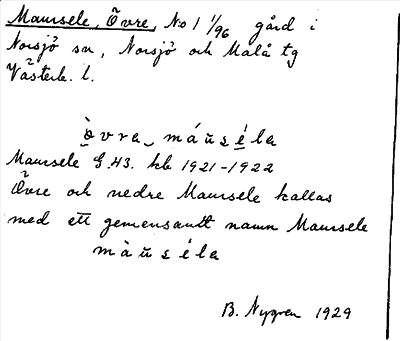 Maursele, Övre, No 1 1/96 gård i
Norsjö sn, Norsjö och Malå tg
Västerb. l.
ò̤vra‿máu̅sé̲la
Maursele G.43. kb 1921-1922
Övre och nedre Maursele kallas
med ett gemensamt namn Maursele
màu̅séla
B. Nygren 1929